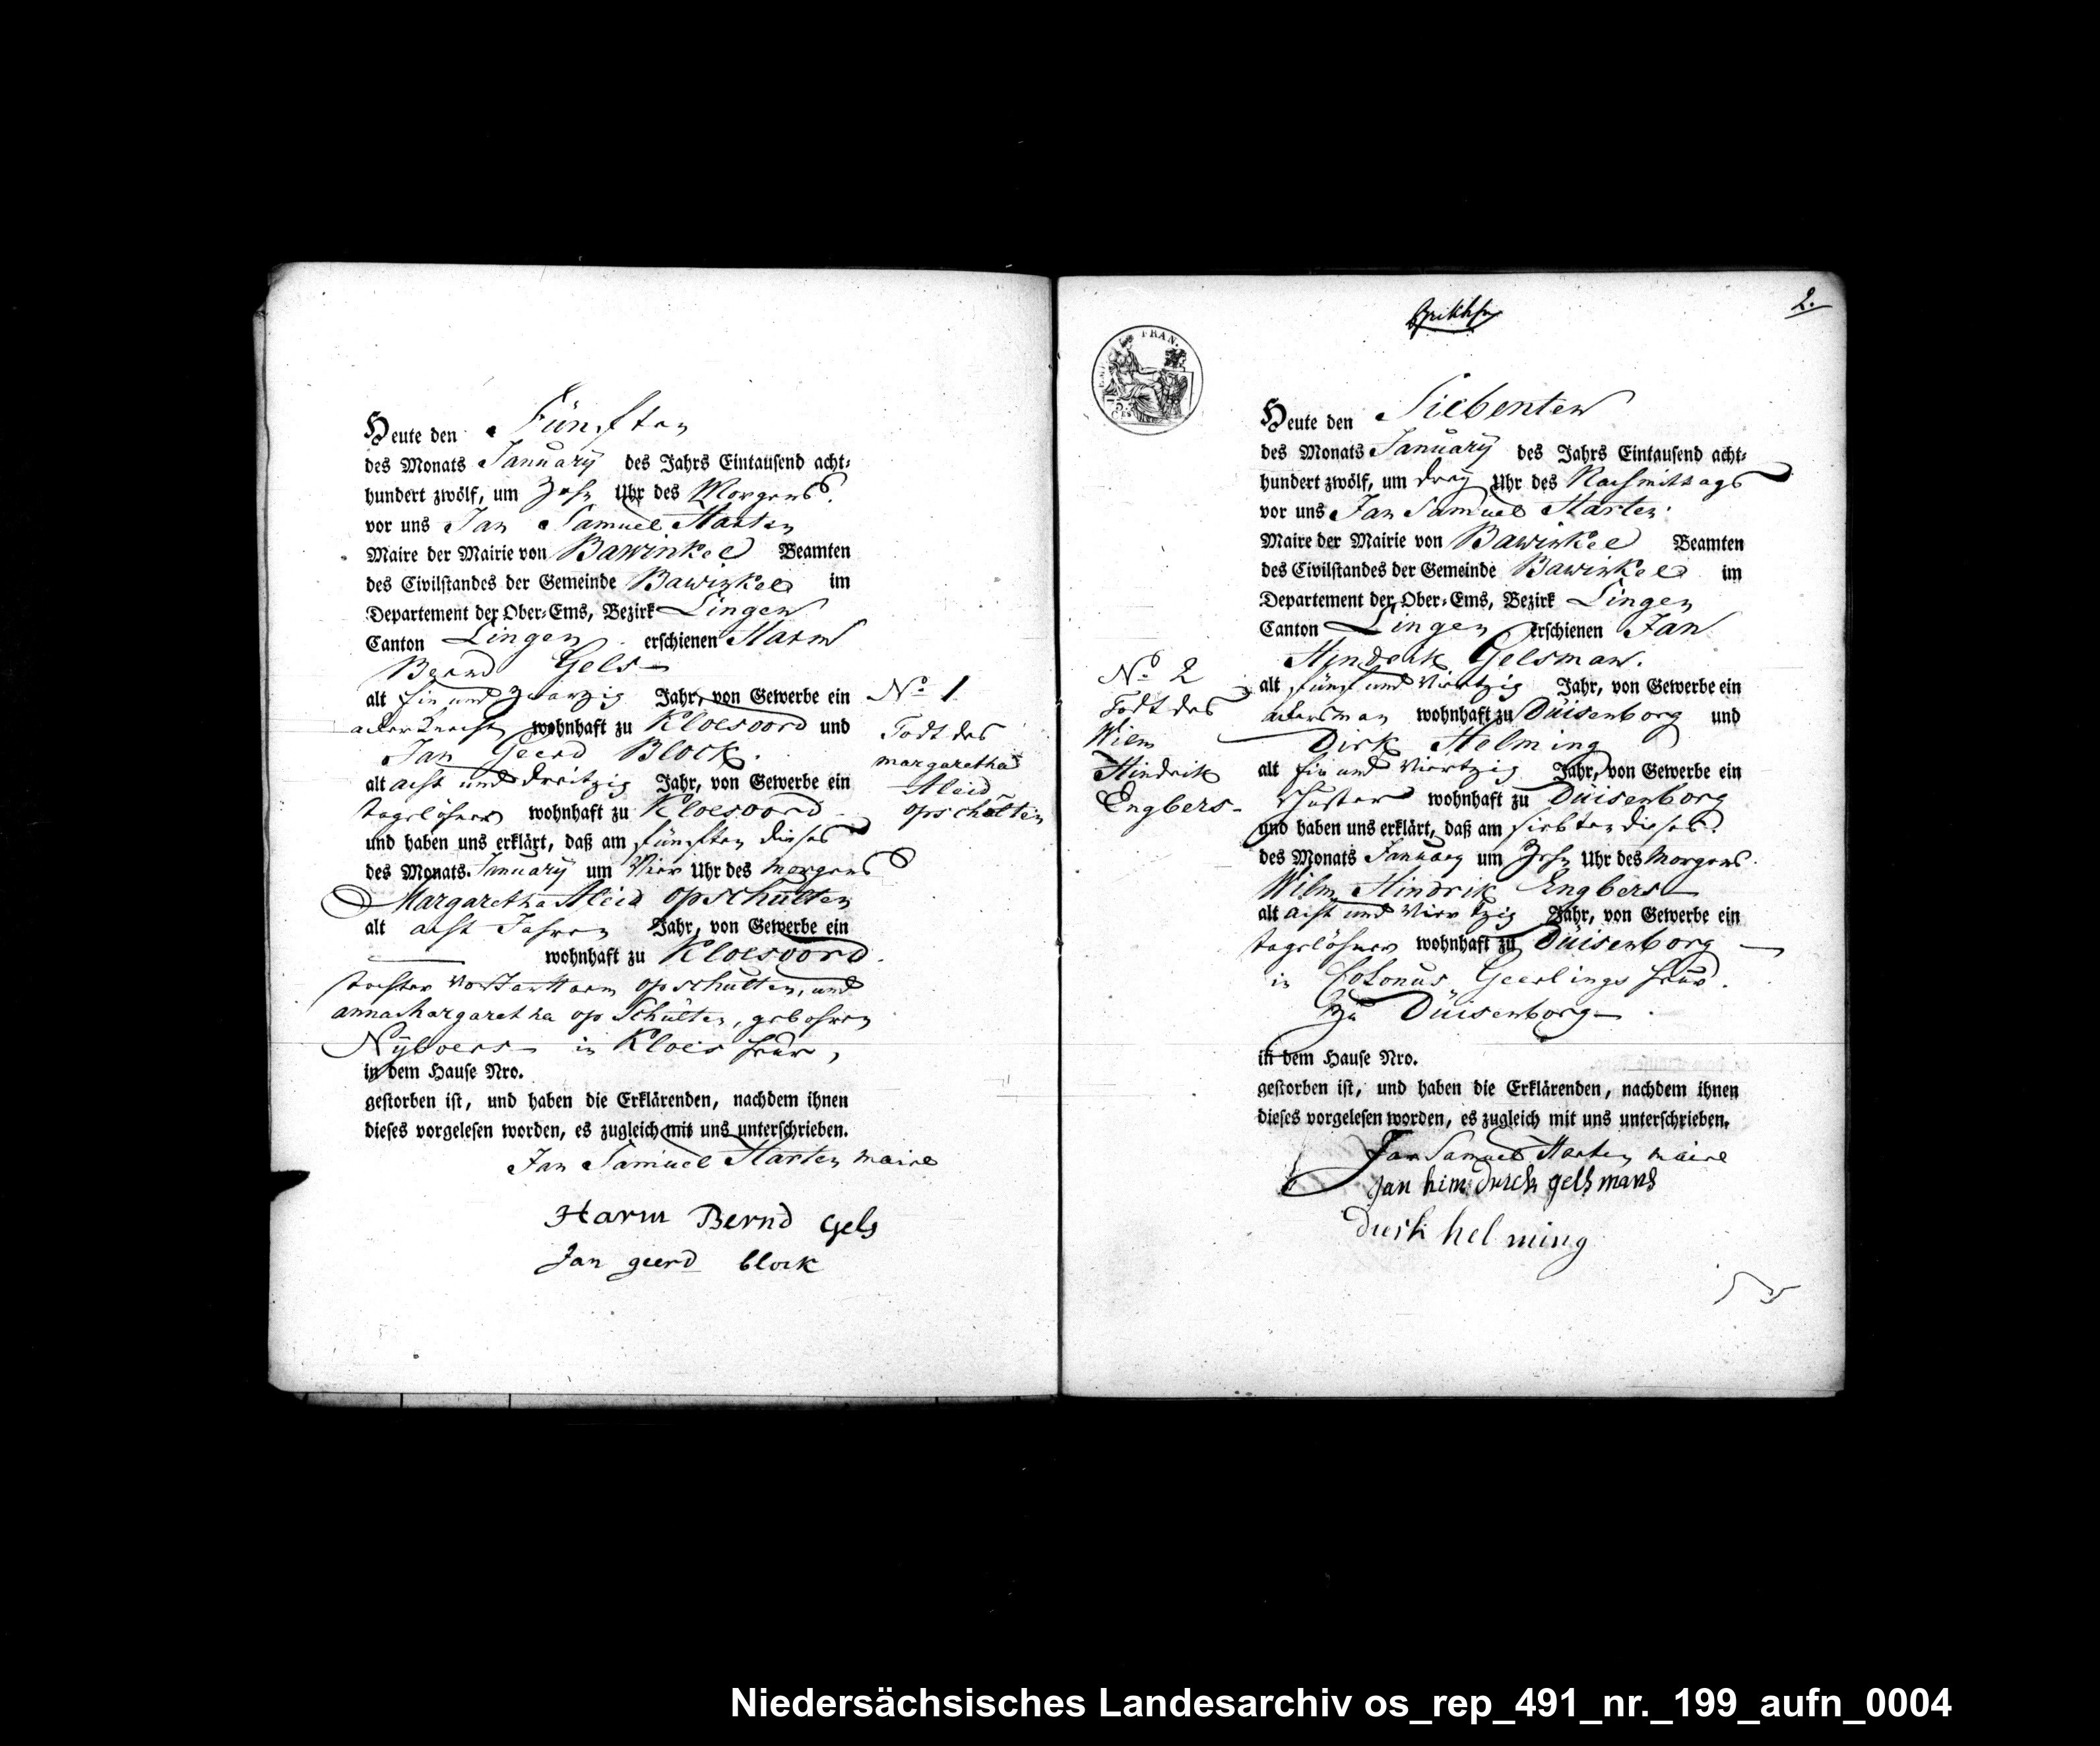 Heute den Fünften
des Monats January des Jahrs Eintausend acht-
hundert zwölf, um Zehn Uhr des Morgens
vor uns Jan Samuel Harten
Maire der Mairie von Bawinkel Beamten
des Civilstandes der Gemeinde Bawinkel im
Departement der Ober-Ems, Bezirk Lingen
Canton Lingen erschienen Harm
Bernd Gels
alt ein und zwanzig Jahr, von Gewerbe ein
ackerknecht wohnhaft zu Kloesoord und
Jan Geerd Block.
alt acht und dreitzig Jahr, von Gewerbe ein
tagelöhner wohnhaft zu Kloesoord
und haben uns erklärt, daß am fünften dieses
des Monats January um Vier Uhr des morgens
Margaretha Aleid opschulten
alt acht Jahren Jahr, von Gewerbe ein
wohnhaft zu Kloesoord.
tochter von Jan Harm opschulten, und
anna Margaretha op Schülten, gebohren
Nyboers in Kloes heur,
in dem Hause Nro.
gestorben ist, und haben die Erklärenden, nachdem ihnen
dieses vorgelesen worden, es zugleich mit uns unterschrieben.
Jan Samuel Harten maire
Harm Bernd Gels
Jan geerd block
No 1
Todt des
margaretha
Aleid
opschülten
2.
FRAN.
Heute den Siebenten
des Monats January des Jahrs Eintausend acht-
hundert zwölf, um drey Uhr des Nachmittags
vor uns Jan Samuel Harten
Maire der Mairie von Bawinkel Beamten
des Civilstandes der Gemeinde Bawinkel im
Departement der Ober-Ems, Bezirk Lingen
Canton Lingen erschienen Jan
Hindrik Gelsman.
alt fünf und Viertzig Jahr, von Gewerbe ein
ackersman wohnhaft zu Düisenborg und
Dirk Helming
alt ein und Viertzig Jahr, von Gewerbe ein
schuster wohnhaft zu Düisenborg
und haben uns erklärt, daß am siebten dieses
des Monats January um Zehn Uhr des Morgens.
Wilm Hindrik Engbers
alt acht und Viertzig Jahr, von Gewerbe ein
tagelöhner wohnhaft zu Düisenborg
in Colonus Geerlings heur.
zu Düisenborg
in dem Hause Nro.
gestorben ist, und haben die Erklärenden, nachdem ihnen
dieses vorgelesen worden, es zugleich mit uns unterschrieben.
Jan Samuel Harten maire
Jan hinnderck gelsmans
durk helming
No 2
Todt des
Wilm
Hindrik
Engbers
Niedersächsisches Landesarchiv os_rep_491_nr._199_aufn_0004